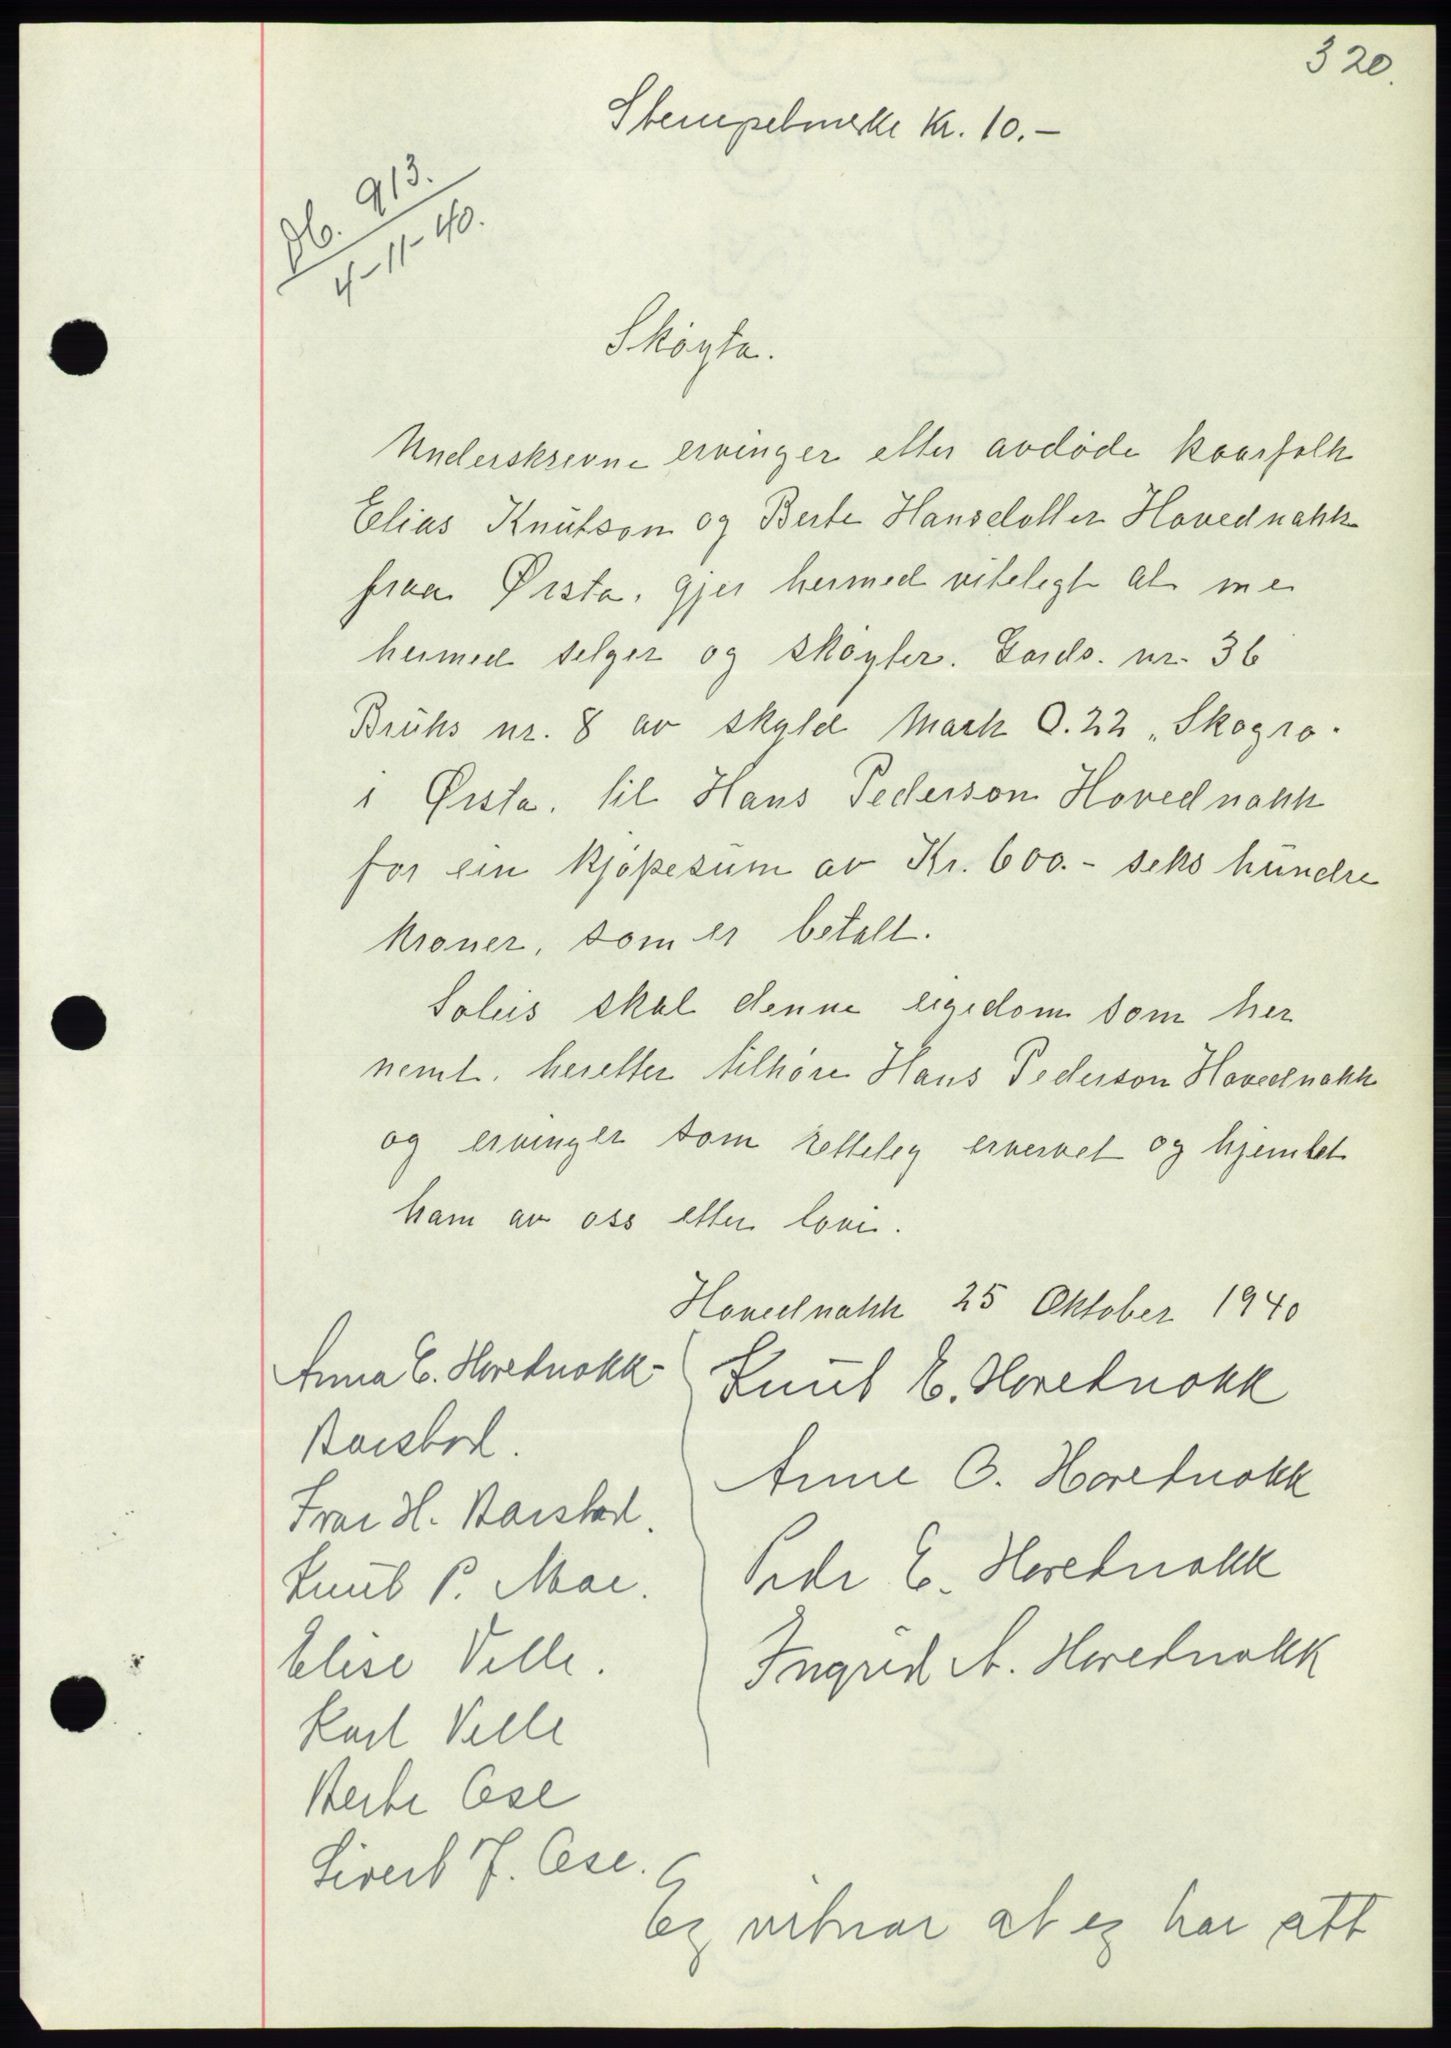 320.
Stempelmerke kr. 10.-
Db. 913.
4-11-40.
Skøyta.
Underskrevne ervinger etter avdøde kaarfolk
Elias Knutson og Berte Hansdotter Hovednakk
fraa Ørsta, gjer hermed vitelegt at me
hermed selger og skøyter. Gards. nr. 36
Bruks nr. 8 av skyld Mark 0.22 „Skogro.
i Ørsta. til Hans Pederson Hovednakk
for ein kjøpesum av Kr. 600.- seks hundre
kroner, som er betalt.
Soleis skal denne eigedom som her
nemt. heretter tilhøre Hans Pederson Hovednakk
og ervinger som retteleg ervervet og hjemlet
ham av oss etter lovi.
Hovednakk 25 Oktober 1940
Anna E. Hovednakk-
Barstad.
Ivar H. Barstad.
Knut P. Moe.
Elise Velle.
Karl Velle
Berte Aase
Sivert J. Aase.
Knut E. Hovednakk
Anne O. Hovednakk
Peder E. Hovednakk
Ingrid A. Hovednakk
Eg vitnar at eg har att